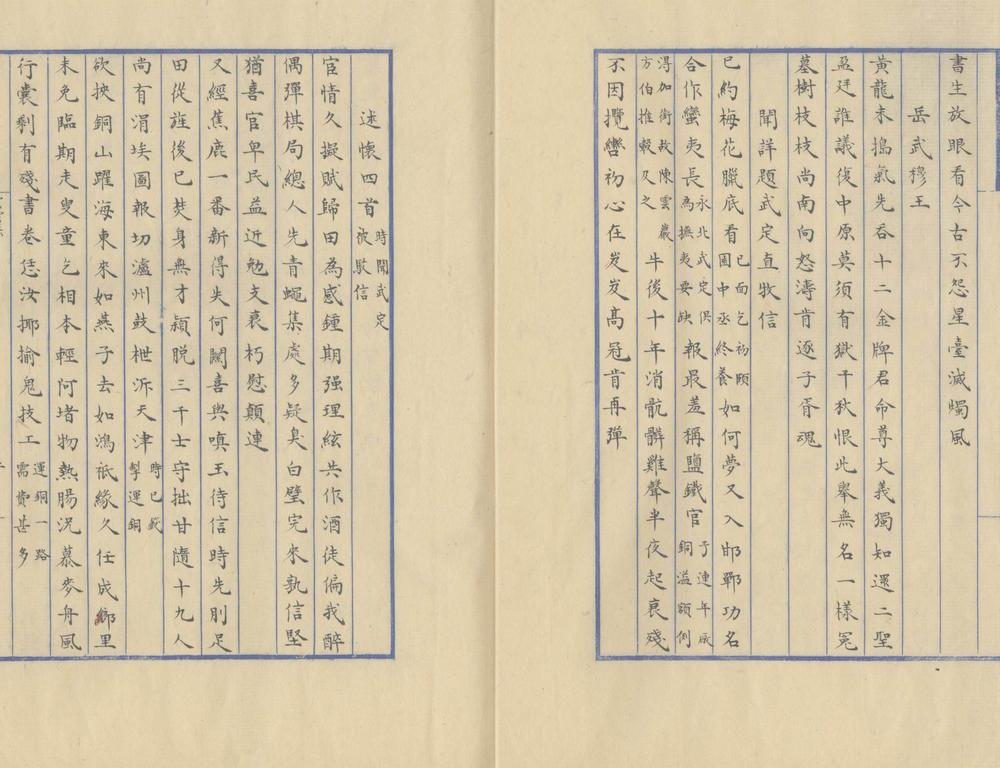 書生放眼看今古不怨星臺滅燭風
岳武穆王
黃龍未搗氣先吞十二金牌君命尊大義獨知還二聖
盈廷誰議復中原莫須有獄千秋恨此舉無名一樣冤
墓樹枝枝尚南向怒濤肯逐子胥魂
聞詳題武定直牧信
已約梅花臘底看已面乞初頤圃中丞終養如何夢又入邯鄲功名
合作蠻夷長永北武定俱為撫夷要缺報最羞稱鹽鐵官予連年廠銅溢額例
得加銜故陳雲巖方伯推轂及之牛後十年消骯髒雞聲半夜起衰殘
不因攬轡初心在岌岌高冠肯再彈
述懷四首時聞武定被駁信
宦情久擬賦歸田為感鍾期强理絃共作酒徒偏我醉
偶彈棋局總人先青蠅集處多疑臭白璧完來孰信堅
猶喜官卑民益近勉支衰朽慰顛連
又經蕉鹿一番新得失何關喜與嗔玉待信時先刖足
田從誑後已焚身無才穎脫三千士守拙甘隨十九人
尚有涓埃圖報切瀘州鼓枻泝天津時已籤掣運銅
欲挾銅山躍海東來如燕子去如鴻祇緣久任成鄉里
未免臨期走叟童乞相本輕阿堵物熱腸況慕麥舟風
行囊剩有殘書卷恁汝揶揄鬼技工運銅一路需費甚多